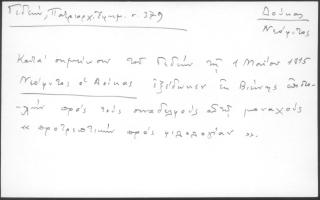 Γεδεών, Πατριαρχ. Ἐφημ. σ. 379
Δούκας
Νεόφυτος
Κατά σημείωσιν τοῦ Γεδεών τῇ 1 Μαΐου 1815
Νεόφυτος ὁ Δούκας ἐξέδωκεν ἐν Βιέννῃ ἐπιστο-
-λήν πρός τούς συναδέλφους αὐτοῦ μοναχούς
« προτρεπτικήν πρός φιλολογίαν ».